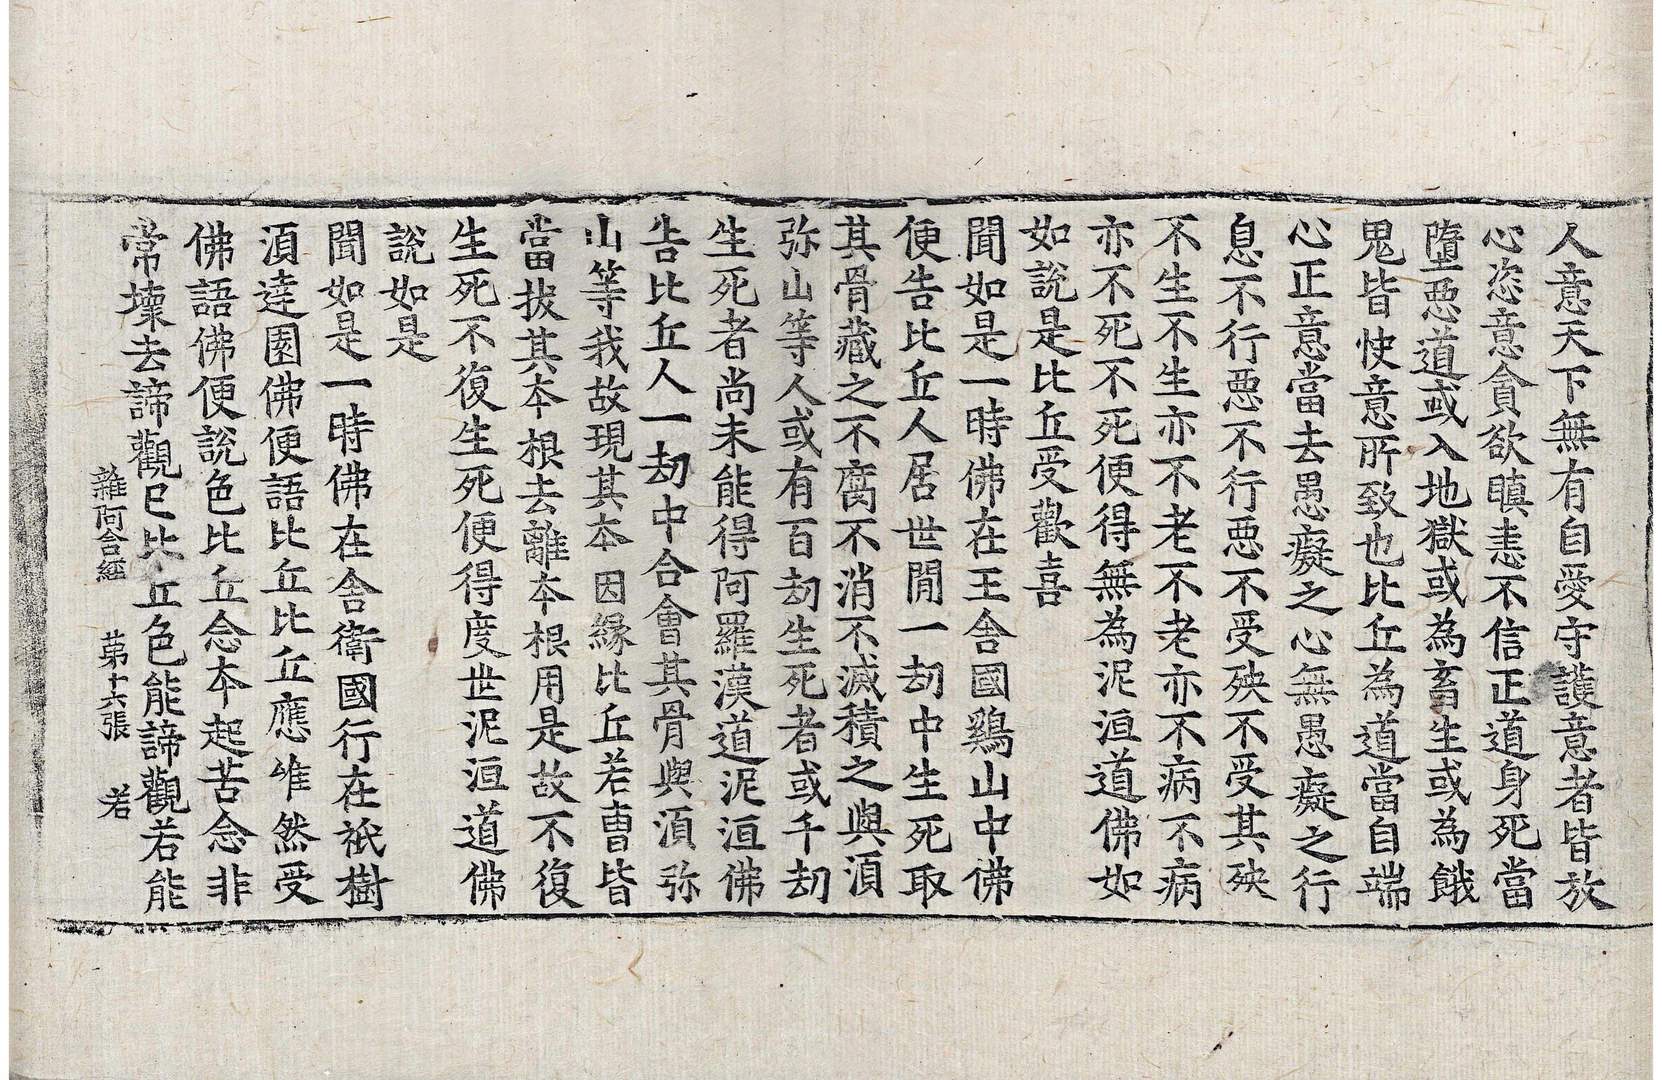 人意天下無有自愛守護意者皆放
心恣意貪欲瞋恚不信正道身死當
墮惡道或入地獄或為畜生或為餓
鬼皆快意所致也比丘為道當自端
心正意當去愚癡之心無愚癡之行
息不行惡不行惡不受殃不受其殃
不生不生亦不老不老亦不病不病
亦不死不死便得無為泥洹道佛如
如說是比丘受歡喜
聞如是一時佛在王舍國鷄山中佛
便告比丘人居世間一劫中生死取
其骨藏之不腐不消不滅積之與湏
弥山等人或有百劫生死者或千劫
生死者尚未能得阿羅漢道泥洹佛
告比丘人一劫中合會其骨與湏弥
山等我故現其本因緣比丘若曹皆
當拔其本根去離本根用是故不復
生死不復生死便得度世泥洹道佛
說如是
聞如是一時佛在舍衛國行在祇樹
湏達園佛便語比丘比丘應唯然受
佛語佛便說色比丘念本起苦念非
常壞去諦觀已比丘色能諦觀若能
雜阿含經 苐十六張 若